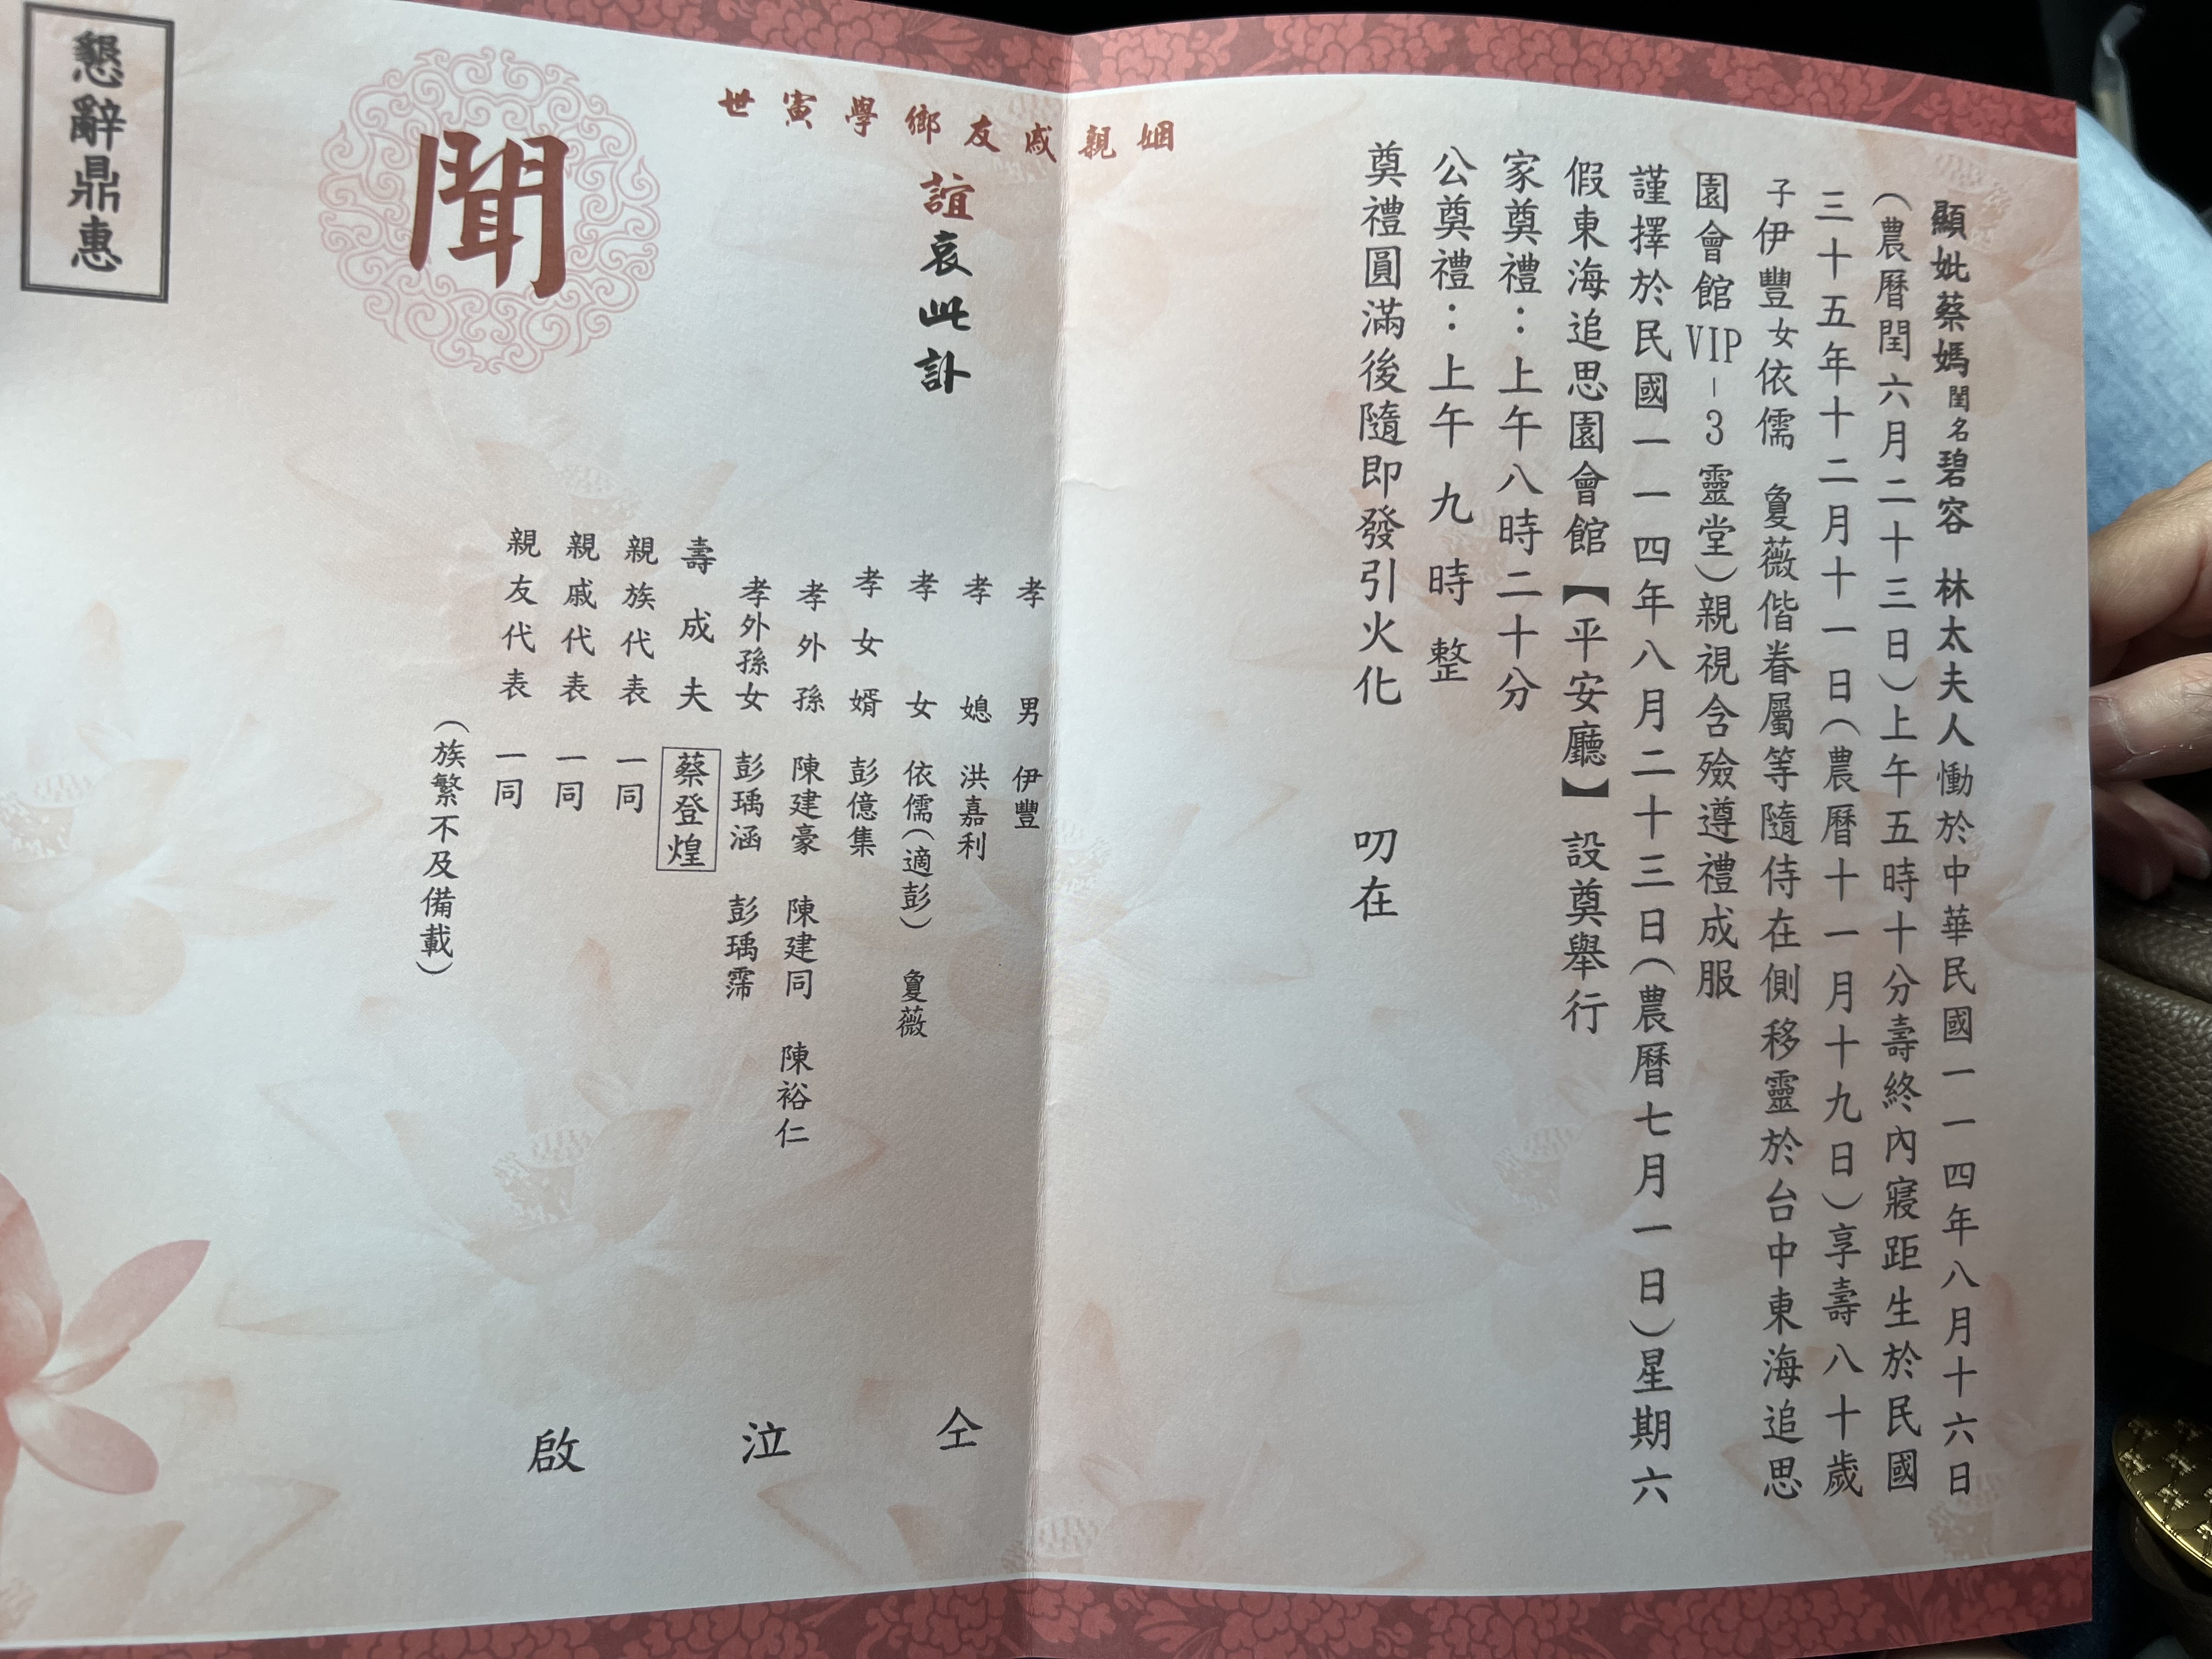 顯妣蔡媽閨名碧容 林太夫人慟於中華民國一一四年八月十六日
(農曆閏六月二十三日)上午五時十分壽終內寢距生於民國
三十五年十二月十一日(農曆十一月十九日)享壽八十歲
子伊豐女依儒 敻薇偕眷屬等隨侍在側移靈於台中東海追思
園會館VIP-3靈堂)親視含殮遵禮成服
謹擇於民國一一四年八月二十三日(農曆七月一日)星期六
假東海追思園會館【平安廳】設奠舉行
家奠禮:上午八時二十分
公奠禮:上午九時整
奠禮圓滿後隨即發引火化 叨在
姻親戚友鄉學寅世
誼哀此訃
聞
孝男 伊豐
孝媳 洪嘉利
孝女 依儒(適彭) 敻薇
孝女婿 彭億集
孝外孫 陳建豪 陳建同 陳裕仁
孝外孫女 彭瑀涵 彭瑀霈
壽成夫 蔡登煌
親族代表 一同
親戚代表 一同
親友代表 一同
(族繁不及備載)
仝泣啟
懇辭鼎惠